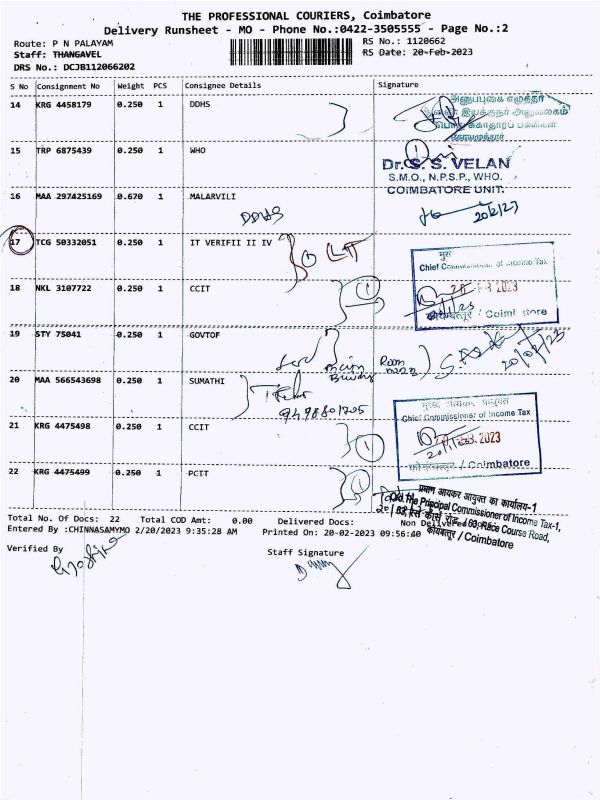 THE PROFESSIONAL COURIERS, Coimbatore
Delivery Runsheet - MO - Phone No.:0422-3505555 - Page No.:2
Route: P N PALAYAM
RS No.: 1120662
Staff: THANGAVEL
RS Date: 20-Feb-2023
DRS No.: DCJB112066202
S No Consignment No Weight PCS Consignee Details Signature
14 KRG 4458179 0.250 1 DDHS
அனுப்புகை எழுத்தர்
15 TRP 6875439 0.250 1 WHO
Dr. S. S. VELAN
S.M.O., N.P.S.P., WHO.
COIMBATORE UNIT.
16 MAA 297425169 0.670 1 MALARVILI
DDHS
20/2/23
17 TCG 50332051 0.250 1 IT VERIFII II IV
Chief Commissioner of Income Tax
18 NKL 3107722 0.250 1 CCIT
1
20 FEB 2023
कोयम्बत्तूर / Coimbatore
19 STY 75041 0.250 1 GOVTOF
main Room
20/02/23
20 MAA 566543698 0.250 1 SUMATHI
मुख्य आयकर आयुक्त
Chief Commissioner of Income Tax
21 KRG 4475498 0.250 1 CCIT
1
20 FEB 2023
कोयम्बत्तूर / Coimbatore
22 KRG 4475499 0.250 1 PCIT
1
प्रधान आयकर आयुक्त का कार्यालय-1
O/o The Principal Commissioner of Income Tax-1,
63, रेस कोर्स रोड / 63, Race Course Road,
कोयम्बत्तूर / Coimbatore
Total No. Of Docs: 22 Total COD Amt: 0.00 Delivered Docs: Non Delivered
Entered By :CHINNASAMYMO 2/20/2023 9:35:28 AM Printed On: 20-02-2023 09:56:40
Verified By
Staff Signature